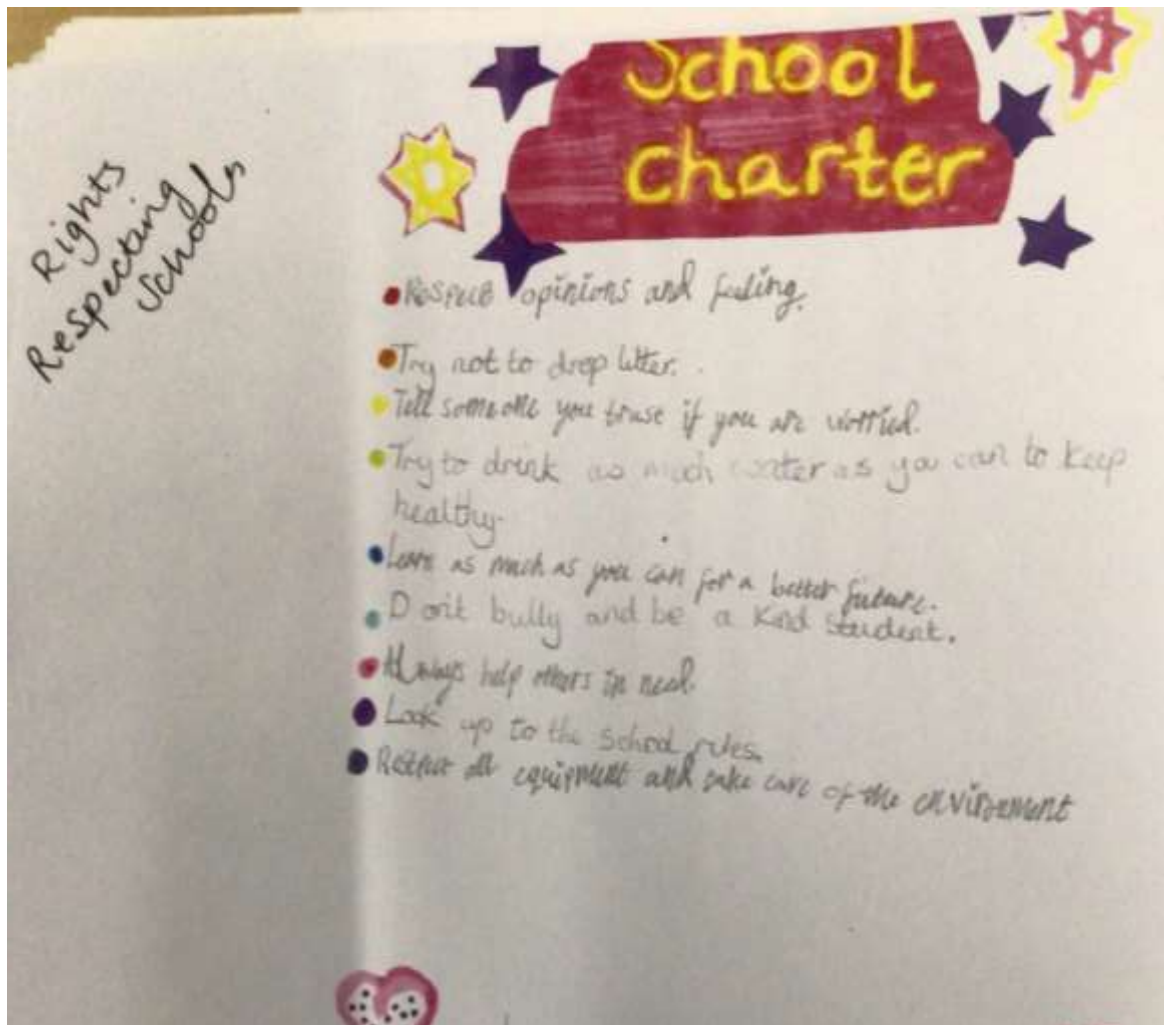 School
Charter
Rights
Respecting
Schools
Respect opinions and feeling.
Try not to drop litter.
Tell someone you truse if you are worried.
Try to drink as much water as you can to keep
healthy.
Learn as much as you can for a better future.
Don't bully and be a kind student.
Always help others in need.
Look up to the school rules.
Respect all equipment and take care of the envirement